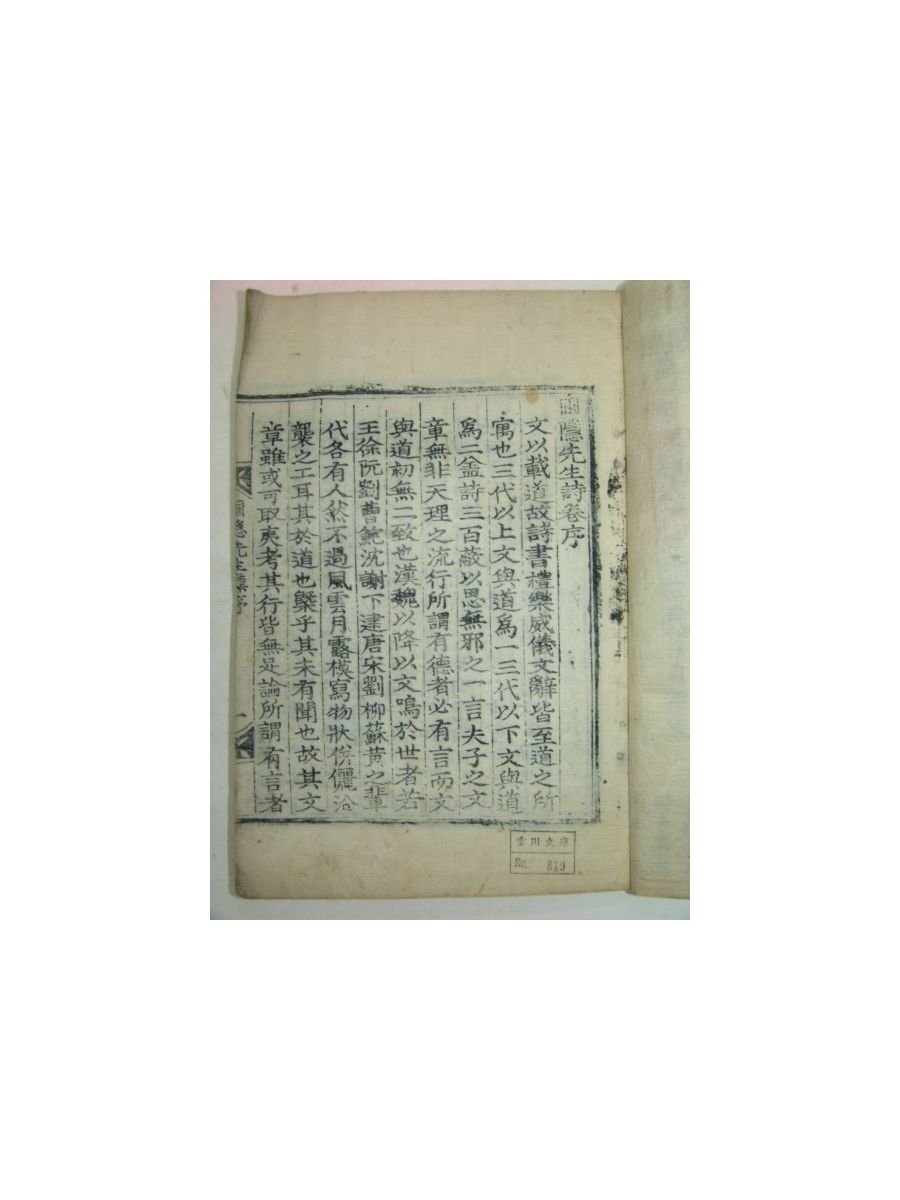 圃隱先生詩卷序
文以載道故詩書禮樂威儀文辭皆至道之所
寓也三代以上文與道爲一三代以下文與道
爲二盖詩三百蔽以思無邪之一言夫子之文
章無非天理之流行所謂有德者必有言而文
與道初無二致也漢魏以降以文鳴於世者若
王徐阮劉曹鮑沈謝下逮唐宋劉柳蘇黃之輩
代各有人然不過風雲月露模寫物狀俳儷沿
襲之工耳其於道也槩乎其未有聞也故其文
章雖或可取夷考其行皆無足論所謂有言者
圃隱先生集序
一
雲川文庫
No. 819